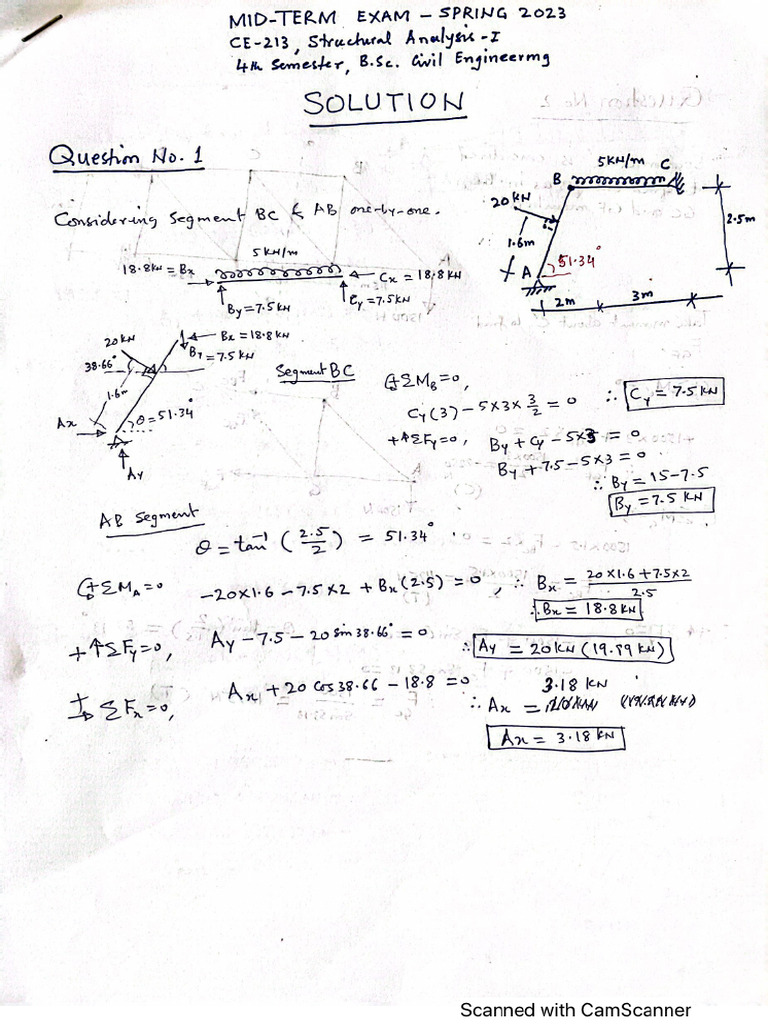 MID-TERM EXAM - SPRING 2023
CE-213, Structural Analysis-I
4th Semester, B.Sc. Civil Engineering
SOLUTION
Question No. 1
5KN/m C
B
20 KN
2.5m
1.6m
A 51.34°
2m 3m
Considering Segment BC & AB one-by-one.
5 KN/m
18.8KN = Bx
Cx = 18.8 KN
By = 7.5 KN
Cy = 7.5 KN
20 KN
Bx = 18.8 KN
By = 7.5 KN
38.66°
1.6m
θ = 51.34°
Ax
Ay
Segment BC
ΣMB = 0,
Cy(3) - 5×3×3/2 = 0 ∴ Cy = 7.5 KN
+↑ΣFy=0, By + Cy - 5×3 = 0
By + 7.5 - 5×3 = 0
∴ By = 15-7.5
By = 7.5 KN
AB Segment
θ = tan⁻¹ (2.5/2) = 51.34°
ΣMA=0 -20×1.6 - 7.5×2 + Bx(2.5) = 0, ∴ Bx = 20×1.6 + 7.5×2 / 2.5
∴ Bx = 18.8 KN
+↑ΣFy=0, Ay - 7.5 - 20 sin 38.66° = 0 ∴ Ay = 20 KN (19.99 KN)
+→ ΣFx=0, Ax + 20 cos 38.66 - 18.8 = 0
3.18 KN
∴ Ax =
Ax = 3.18 KN
Scanned with CamScanner